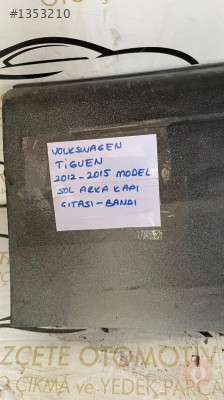 #1353210
VOLKSWAGEN
TİGUEN
2012-2015 MODEL
SOL ARKA KAPI
CITASI-BANDI
ZÇETE OTOMOTİV
ÇIKMA ve YEDEK PARÇA